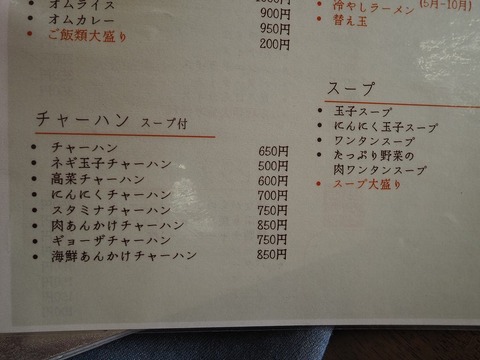 オムライス
オムカレー 900円
ご飯類大盛り 950円
200円
冷やしラーメン (5月-10月)
替え玉
チャーハン スープ付
チャーハン 650円
ネギ玉子チャーハン 500円
高菜チャーハン 600円
にんにくチャーハン 700円
スタミナチャーハン 750円
肉あんかけチャーハン 850円
ギョーザチャーハン 750円
海鮮あんかけチャーハン 850円
スープ
玉子スープ
にんにく玉子スープ
ワンタンスープ
たっぷり野菜の
肉ワンタンスープ
スープ大盛り